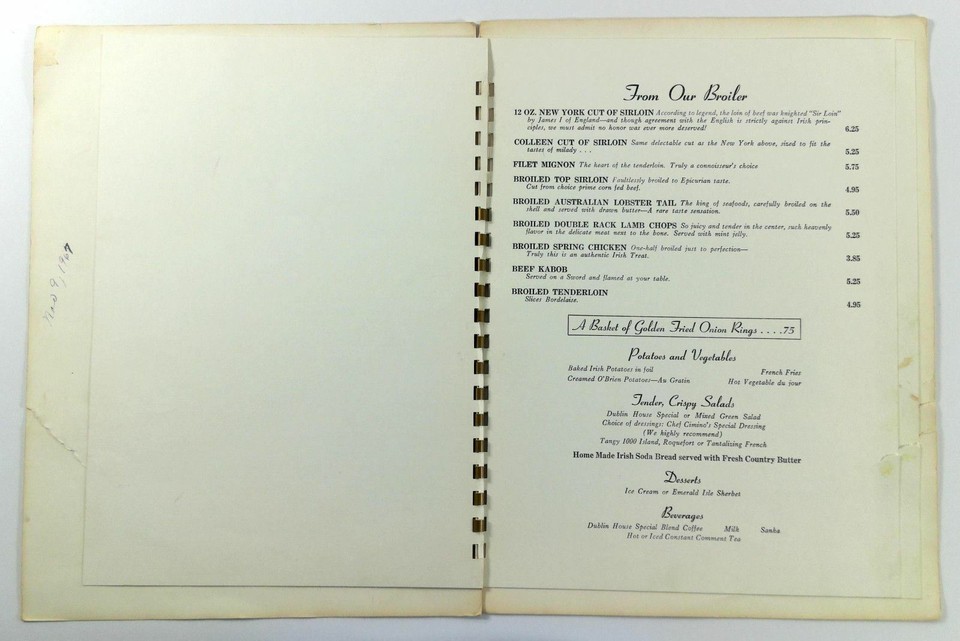 Nov 9, 1967
From Our Broiler
12 OZ. NEW YORK CUT OF SIRLOIN According to legend, the loin of beef was knighted "Sir Loin"
by James I of England—and though agreement with the English is strictly against Irish prin-
ciples, we must admit no honor was ever more deserved! 6.25
COLLEEN CUT OF SIRLOIN Same delectable cut as the New York above, sized to fit the
tastes of milady . . . 5.25
FILET MIGNON The heart of the tenderloin. Truly a connoisseur's choice 5.75
BROILED TOP SIRLOIN Faultlessly broiled to Epicurian taste.
Cut from choice prime corn fed beef. 4.95
BROILED AUSTRALIAN LOBSTER TAIL The king of seafoods, carefully broiled on the
shell and served with drawn butter—A rare taste sensation. 5.50
BROILED DOUBLE RACK LAMB CHOPS So juicy and tender in the center, such heavenly
flavor in the delicate meat next to the bone. Served with mint jelly. 5.25
BROILED SPRING CHICKEN One-half broiled just to perfection—
Truly this is an authentic Irish Treat. 3.85
BEEF KABOB
Served on a Sword and flamed at your table. 5.25
BROILED TENDERLOIN
Slices Bordelaise. 4.95
A Basket of Golden Fried Onion Rings . . . .75
Potatoes and Vegetables
Baked Irish Potatoes in foil French Fries
Creamed O'Brien Potatoes—Au Gratin Hot Vegetable du jour
Tender, Crispy Salads
Dublin House Special or Mixed Green Salad
Choice of dressings: Chef Cimino's Special Dressing
(We highly recommend)
Tangy 1000 Island, Roquefort or Tantalizing French
Home Made Irish Soda Bread served with Fresh Country Butter
Desserts
Ice Cream or Emerald Isle Sherbet
Beverages
Dublin House Special Blend Coffee Milk Sanka
Hot or Iced Constant Comment Tea